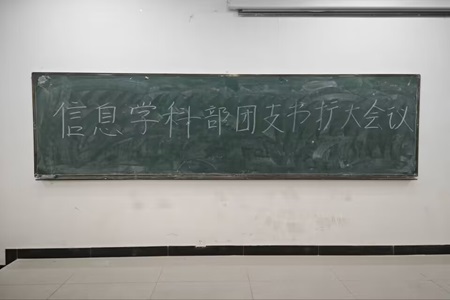 信息学科部团支书扩大会议